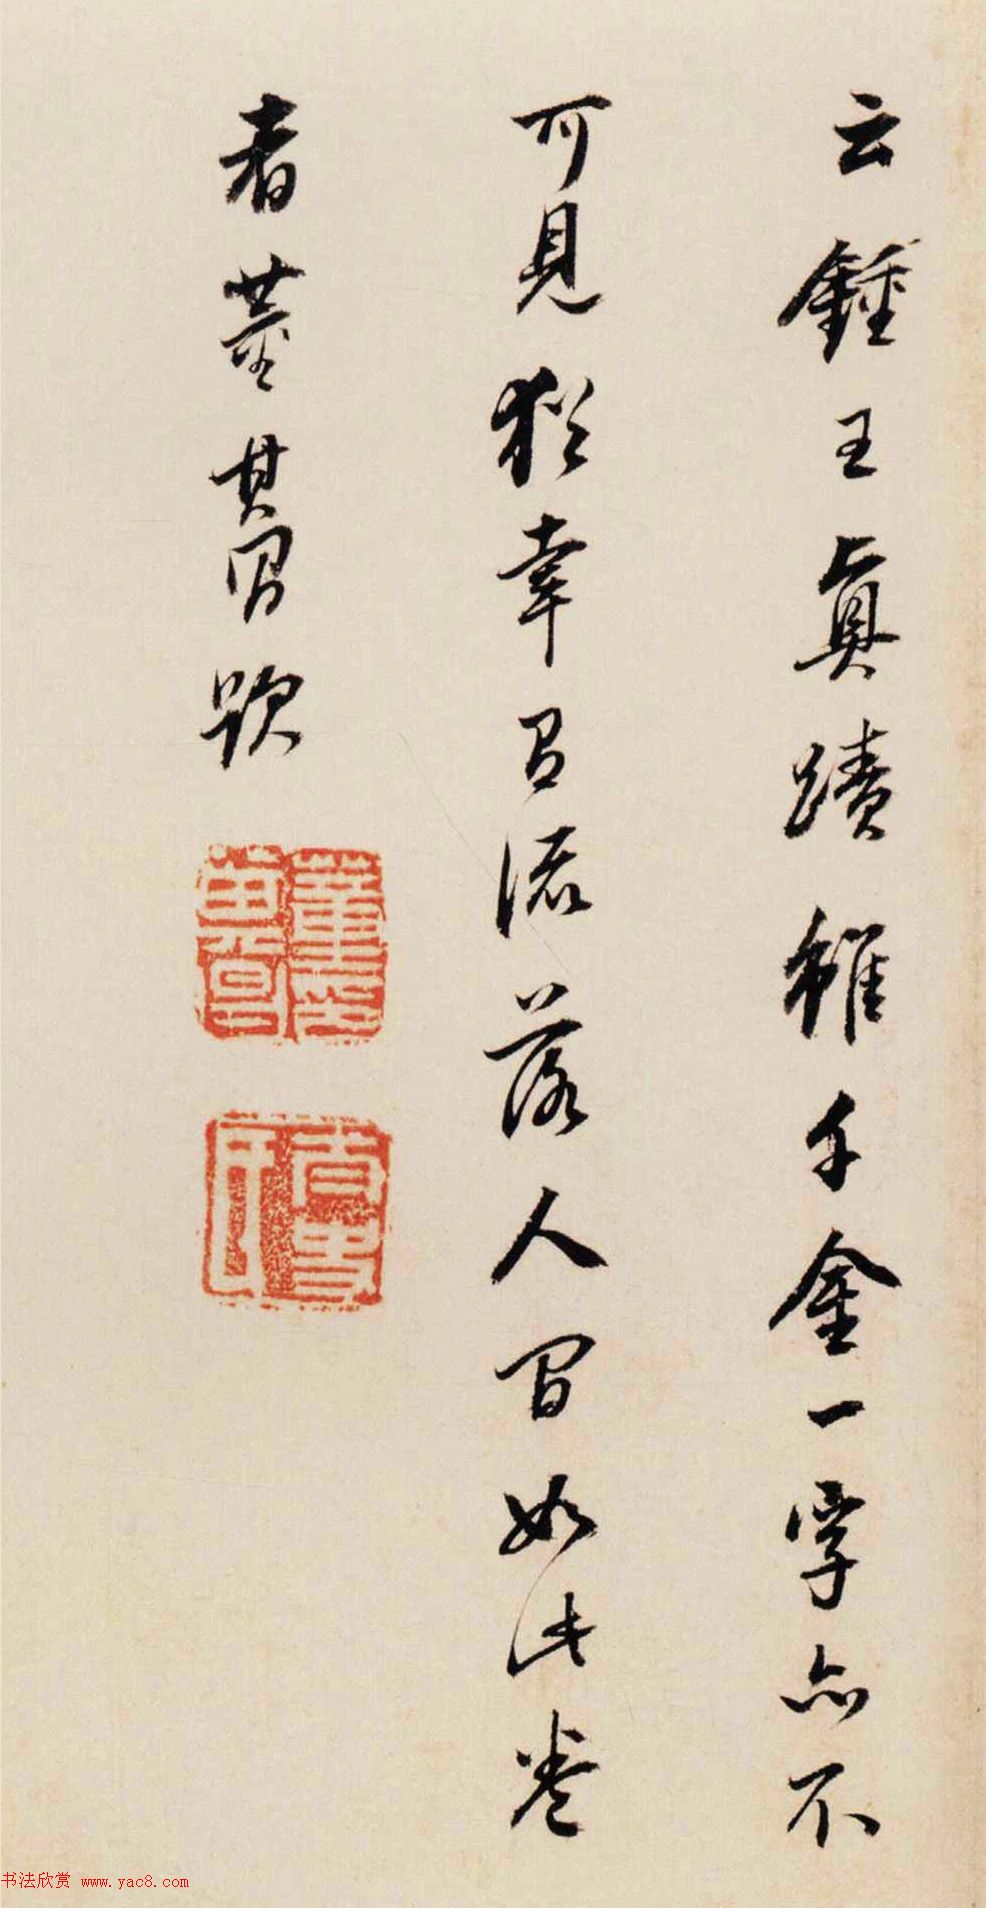 云鍾王真蹟雖千金一字亦不
可見猶幸有流落人間如此卷
者董其昌題
董其昌
書法欣赏 www.yac8.com